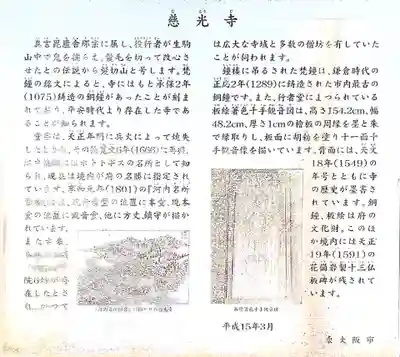 慈光寺
真言毘盧舎那宗に属し、役行者が生駒
山中で鬼を捕らえ、髪毛を切って改心さ
せたとの伝説から髪切山と号します。梵
鐘の銘文によると、寺にはもと承保2年
(1075)鋳造の銅鐘があったことが刻ま
れており、平安時代より存在した寺であ
ることが知られます。
天正年間に兵火によって焼失
ホトトギスの名所として知
られ、現在は境内が府の名勝に指定され
ています。享和元年(1801)の『河内名所
図会』には、現
本堂の位置に観音堂、他に方丈、鎮守が描か
れています。
また古
院
が存
在したとさ
れ、かつて
は広大な寺域と多数の僧坊を有していた
ことが伺われます。
鐘楼に吊るされた梵鐘は、鎌倉時代の
正応2年(1289)に鋳造された市内最古の
銅鐘です。また、行者堂にまつられている
板絵著色千手観音図は、高さ154.2cm、幅
48.2cm、厚さ1cmの桧板の周縁を墨と朱
で縁取りし、板面に胡粉を塗り十一面千
手観音像を描いています。背面には、天文
18年(1549)の
年号とともに寺
の歴史が墨書さ
れています。銅
鐘、板絵は府の
文化財。このほ
か境内には天正
19年(1591)の
花崗岩製十三仏
板碑が残されて
います。
平成15年3月
東大阪市